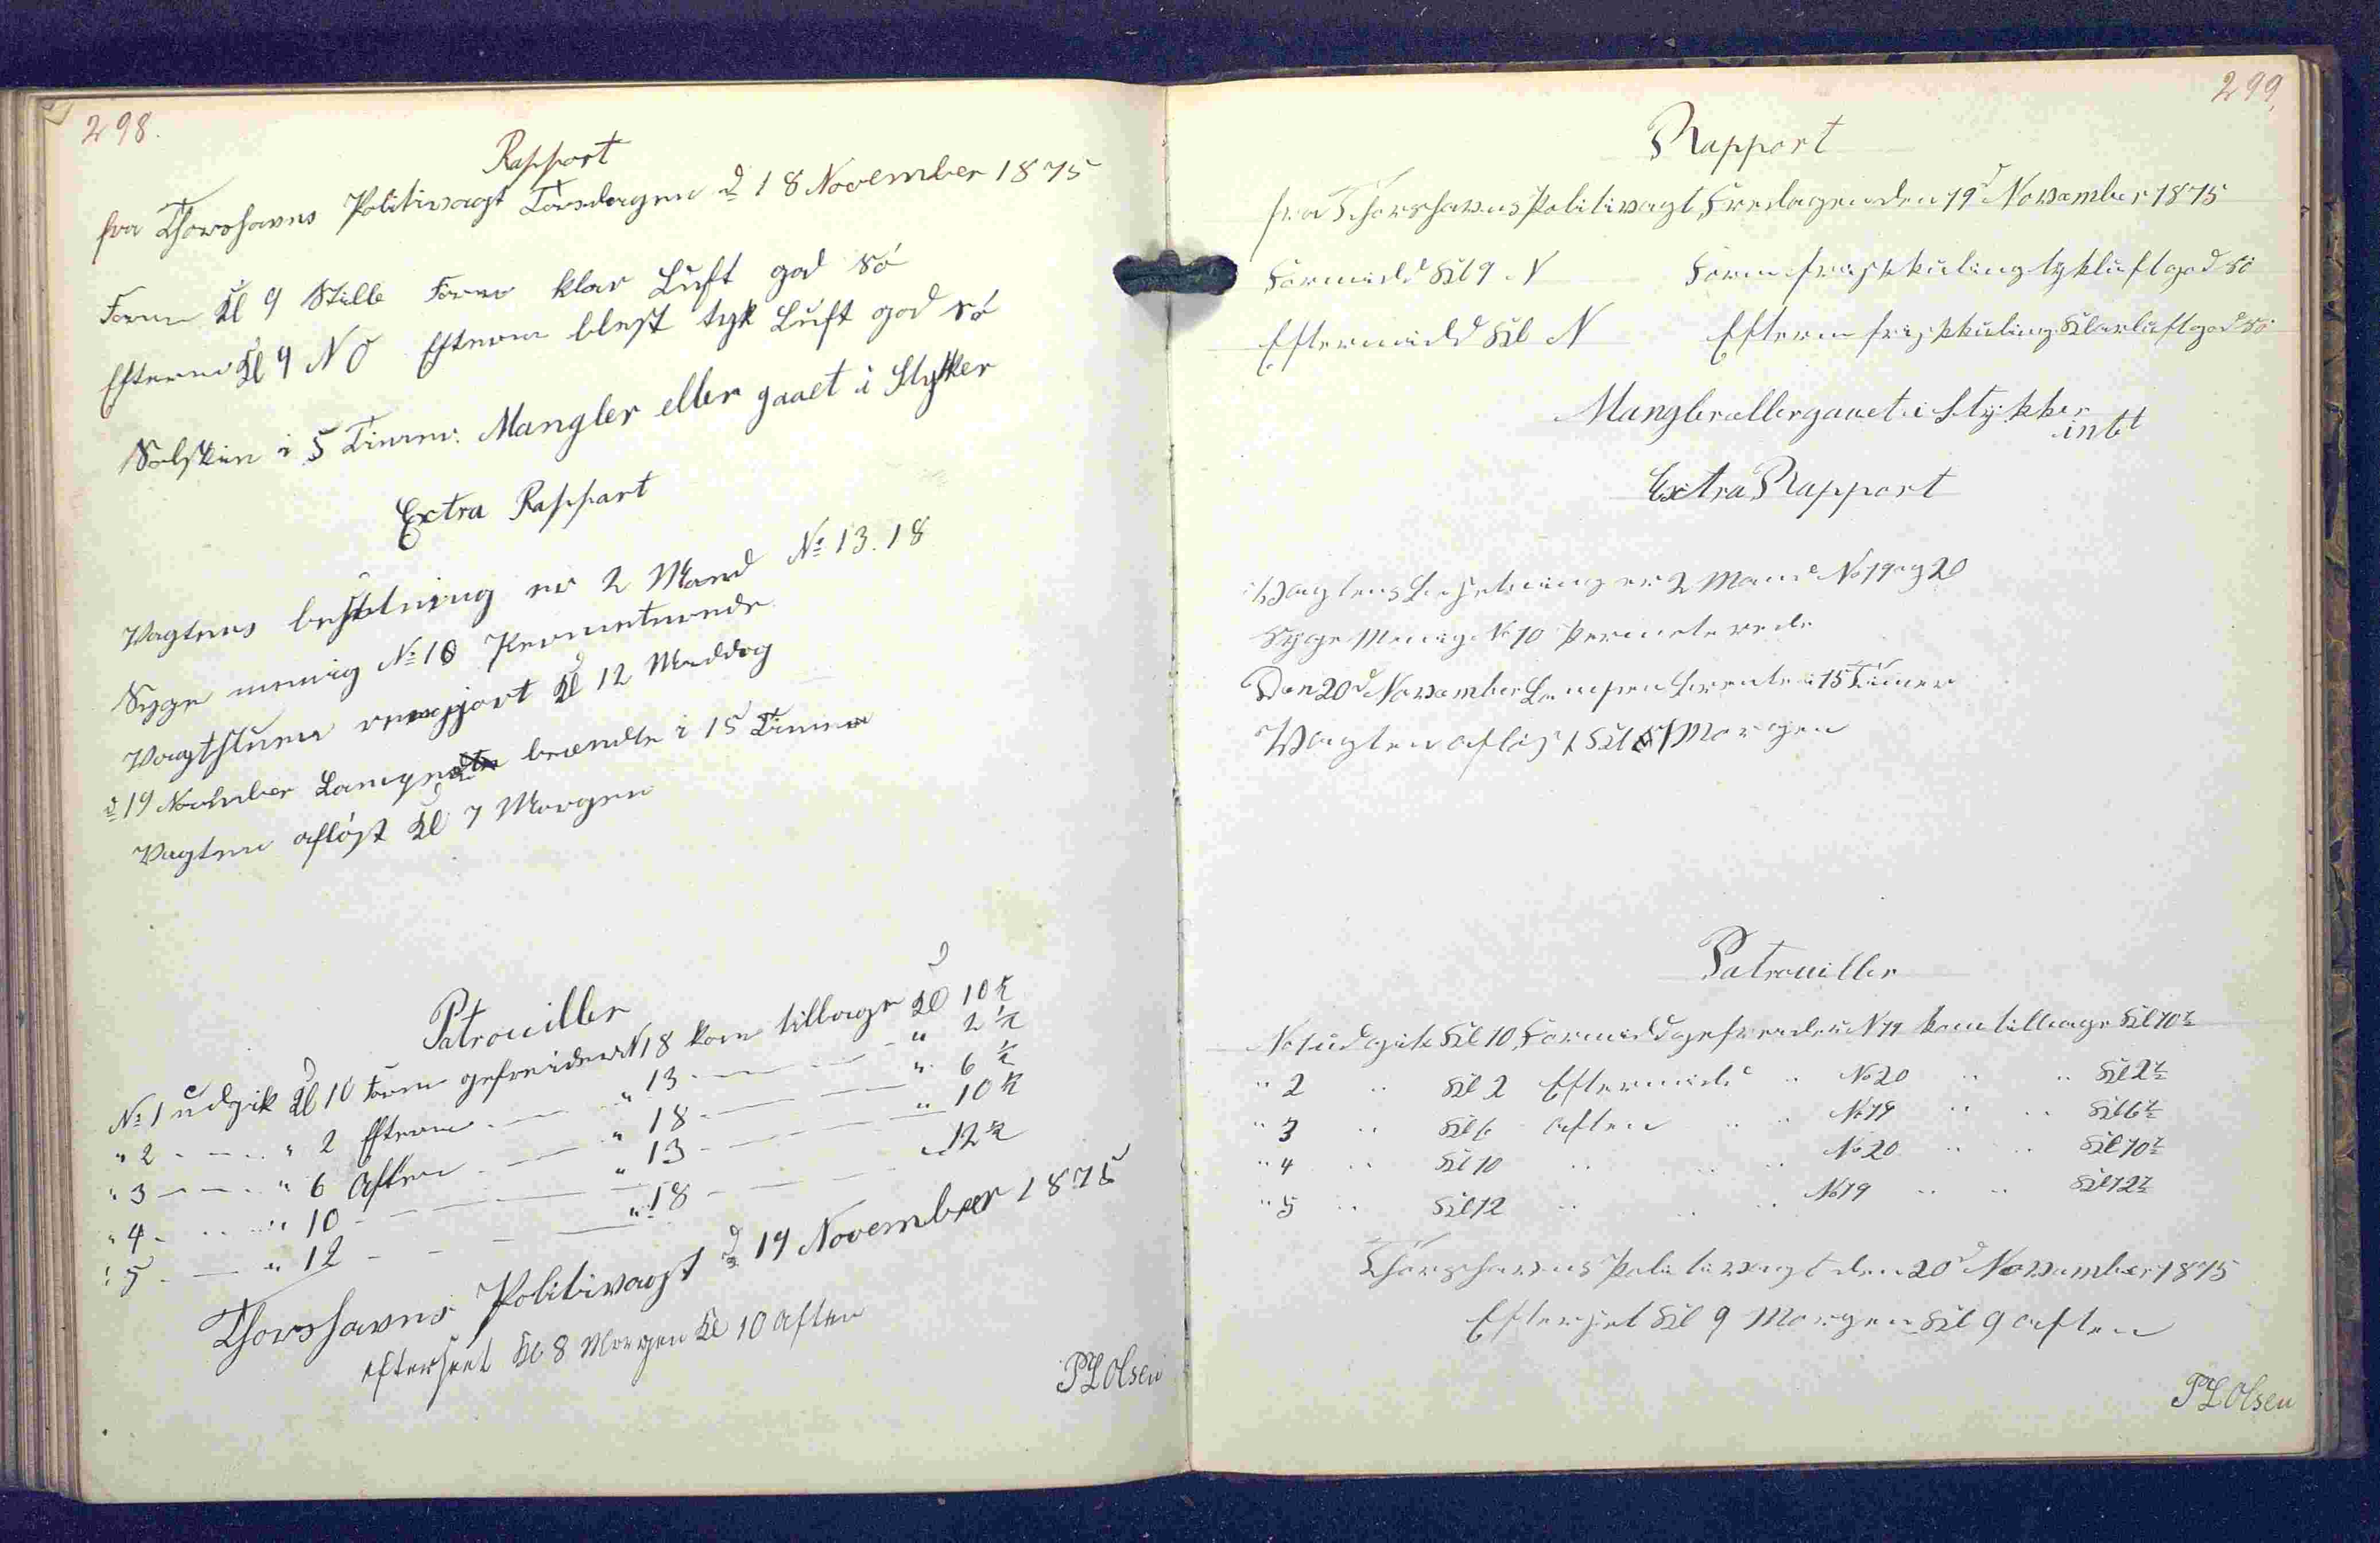 298.
Rapport
fra Thorshavns Politivagt Torsdagen d 18 November 1875
Form Kl 9 Stille Form klar Luft god Sö
Efterm Kl 9 NO Efterm blest tyk Luft god Sö
Solskin i 5 Timer. Mangler eller gaaet i Stykker
Extra Rappart
Vagtens besetning er 2 Mand No 13. 18
Syge menig No 10 Permeterede
Vagtstuen rengjort Kl 12 Middag
d 19 November Lampen brændte i 15 Timer
Vagten aflöst Kl 7 Morgen
Patrouiller
No 1 udgik Kl 10 Form gefreider N 18 kom tilbage Kl 10 ½
" 2 - - - " 2 Efterm - - " 13 - - - " 2 ½
" 3 - - - " 6 Aften - - " 18 - - - " 6 ½
" 4 - - - " 10 - - - " 13 - - - " 10 ½
" 5 - - " 12 - - - " 18 - - - " 12 ½
Thorshavns Politivagt d 19 November 1875
Efterseet Kl 8 Morgen Kl 10 Aften
PL Olsen
299,
Rapport
fra Thorshavns Politivagt Fredagen den 19d November 1875
Formidd Kl 9 N Form frisk kuling tyk luft god Sö
Eftermidd Kl N Efterm frisk kuling Klar luft god Sö
Mangler eller gauet i Stykker
intet
Extra Rapport
Vagtens besetning er 2 Mand No 19 og 20
Syge Menig No 10 Permeterede
Den 20d November Lampen brente i 15 Timer
Vagten aflöst Kl 7 Morgen
Patrouiller
No 1 udgik Kl 10 Formidd gefreider N 19 kom tilbage Kl 10 ½
" 2 " Kl 2 Eftermidd " No 20 " " Kl 2 ½
" 3 " Kl 6 Aften " " No 19 " " Kl 6 ½
" 4 " Kl 10 " " " No 20 " " Kl 10 ½
" 5 " Kl 12 " " " No 19 " " Kl 12 ½
Thorshavns Politivagt den 20d November 1875
Efterset Kl 9 Morgen Kl 9 aften
PL Olsen